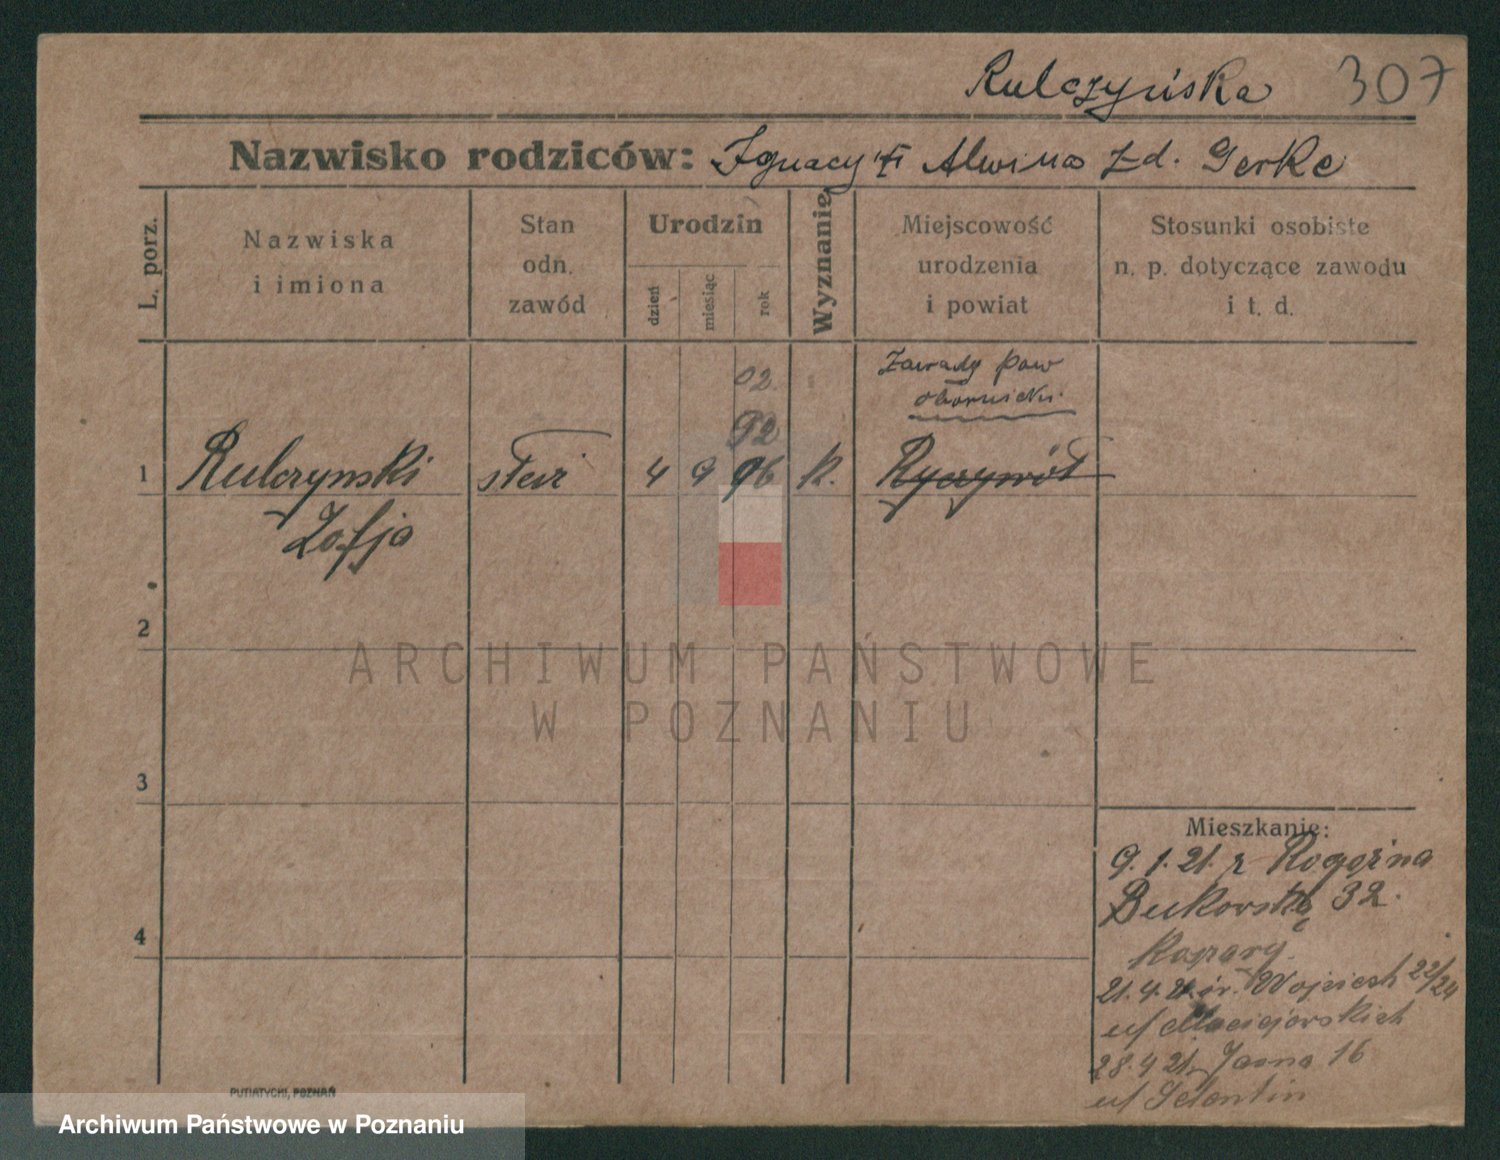 Rulczyńska 307
Nazwisko rodziców: Ignacy i Alwina zd. Gerke
L. porz.
Nazwiska
i imiona
Stan
odn.
zawód
Urodzin
dzień
miesiąc
rok
Wyznanie
Miejscowość
urodzenia
i powiat
Stosunki osobiste
n. p. dotyczące zawodu
i t. d.
Zawady pow
obornicki.
02
92
1 Rulczynski 4 9 96 k. Ryczywół
Zofja
2
ARCHIWUM PAŃSTWOWE
W POZNANIU
3
Mieszkanie:
9. 1. 21. z Rogoźna
Bukowska 32.
4
21. 4. 21. św. Wojciech 22/24
u/ Maciejewskich
28. 4 21. Jasna 16
u/
PUTIATYCKI, POZNAŃ
Archiwum Państwowe w Poznaniu